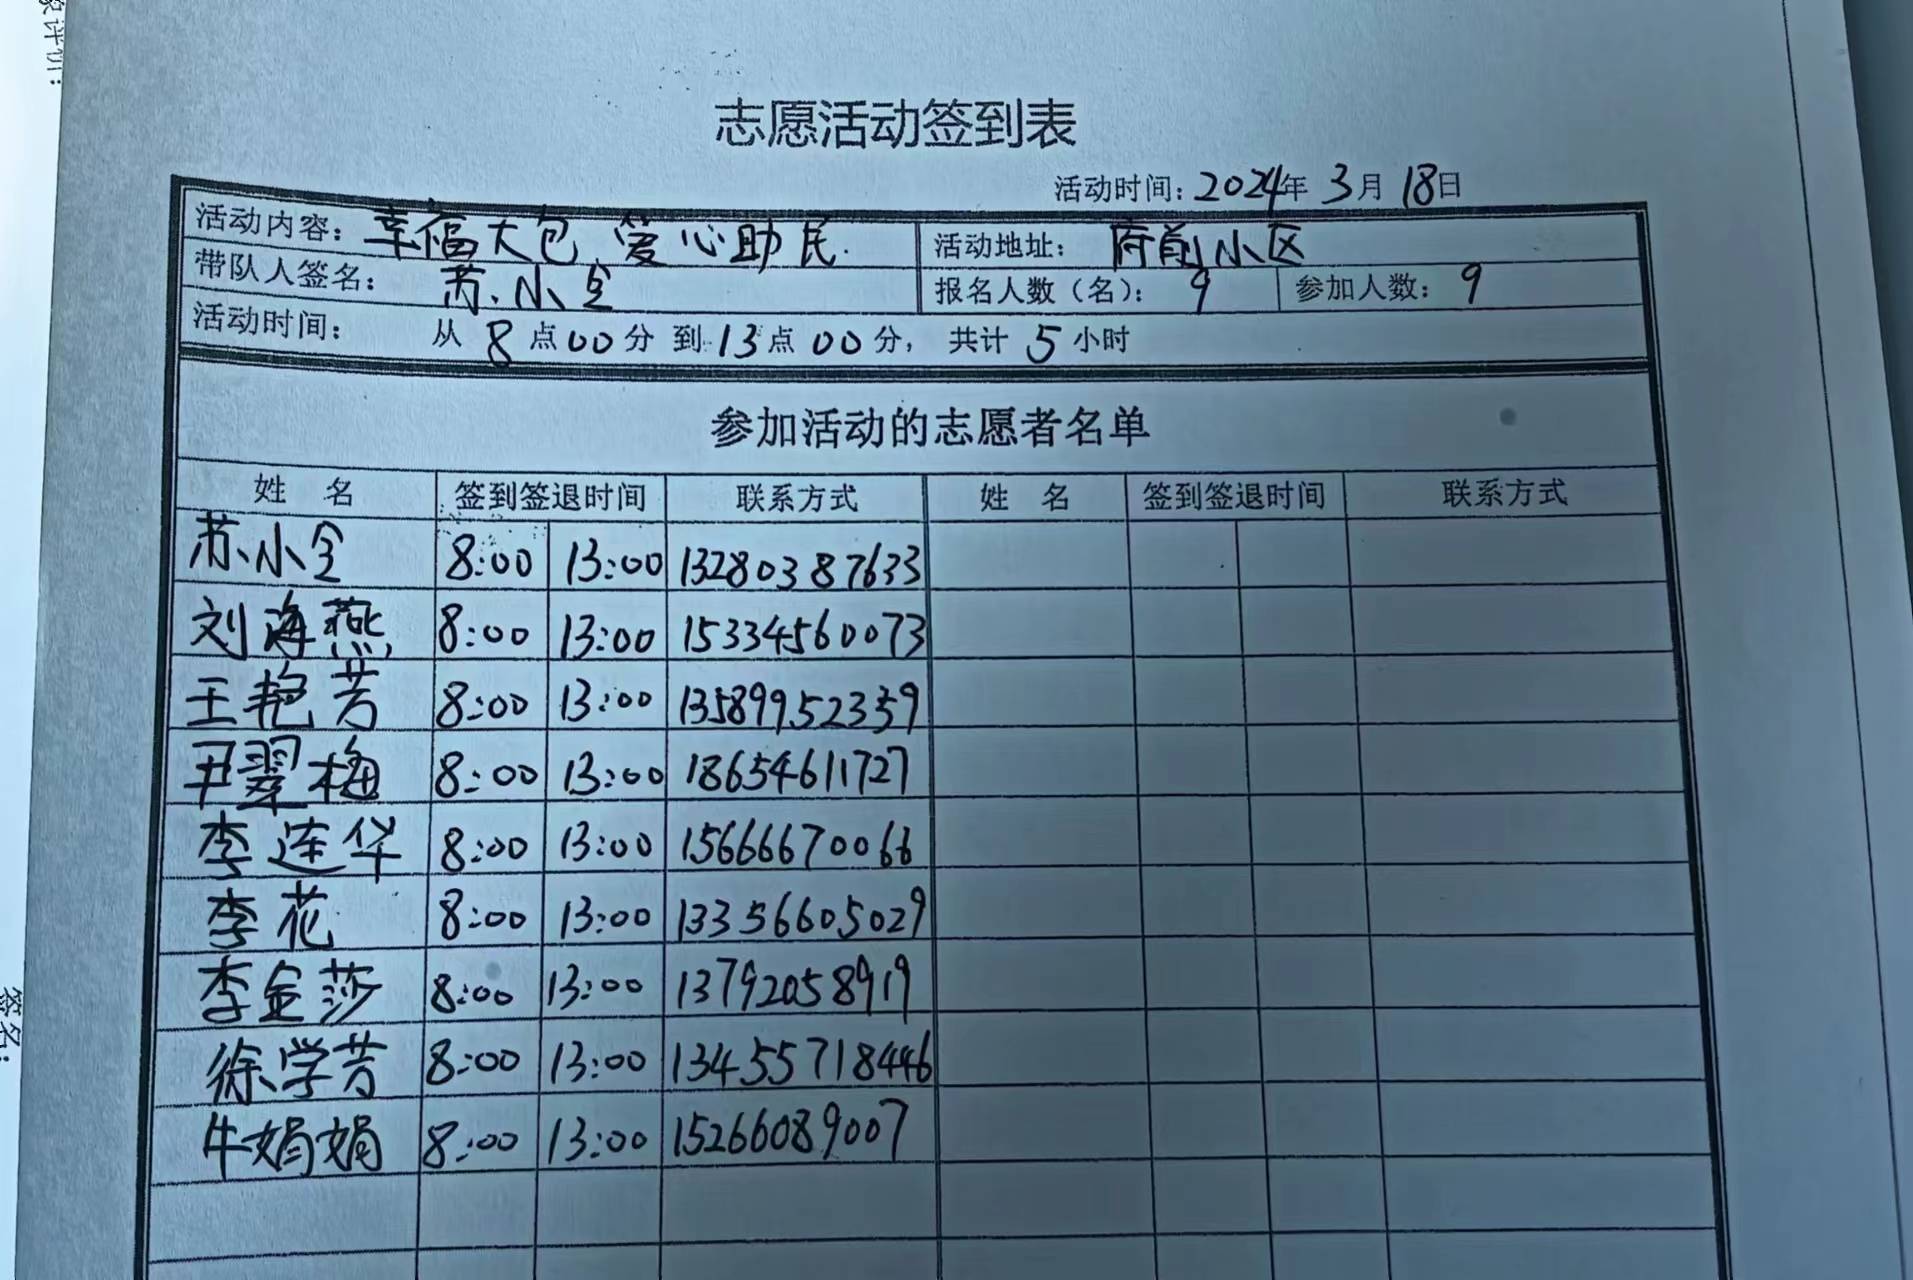 志愿活动签到表
活动时间：2024年 3月 18日
活动内容：幸福大包、爱心助民. 活动地址：府前小区
带队人签名：苏小全 报名人数（名）：9 参加人数：9
活动时间：从 8 点 00 分 到 13 点 00 分，共计 5 小时
参加活动的志愿者名单
姓 名 签到签退时间 联系方式 姓 名 签到签退时间 联系方式
苏小全 8:00 13:00 13280387633
刘海燕 8:00 13:00 15334560073
王艳芳 8:00 13:00 13589952359
尹翠梅 8:00 13:00 18654611727
李莲华 8:00 13:00 15666670066
李花 8:00 13:00 13356605029
李金莎 8:00 13:00 13792058919
徐学芳 8:00 13:00 13455718446
牛娟娟 8:00 13:00 15266089007
签名：